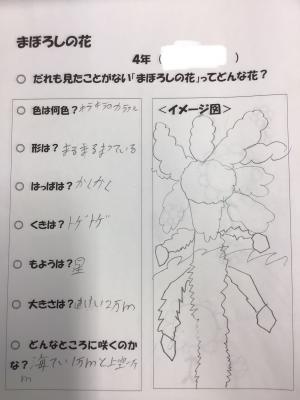 まぼろしの花
4年（　　　　　）
○ だれも見たことがない「まぼろしの花」ってどんな花？
○ 色は何色？キラキラのカラフル
○ 形は？まるまるまっている
○ はっぱは？かくかく
○ くきは？トゲトゲ
○ もようは？星
○ 大きさは？2万m
○ どんなところに咲くのか
な？海てい1万mと上空一万
m
＜イメージ図＞